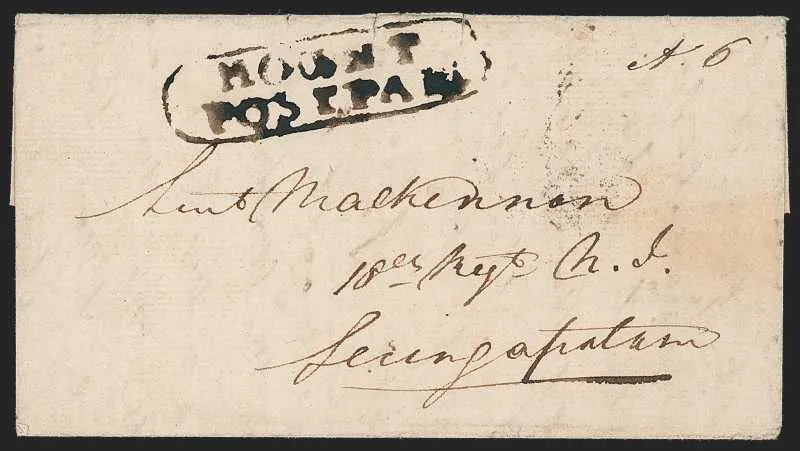 MOUNT
POST.PAID
A. 6
Lieut Mackennon
18th Regt N. I.
Seringapatam